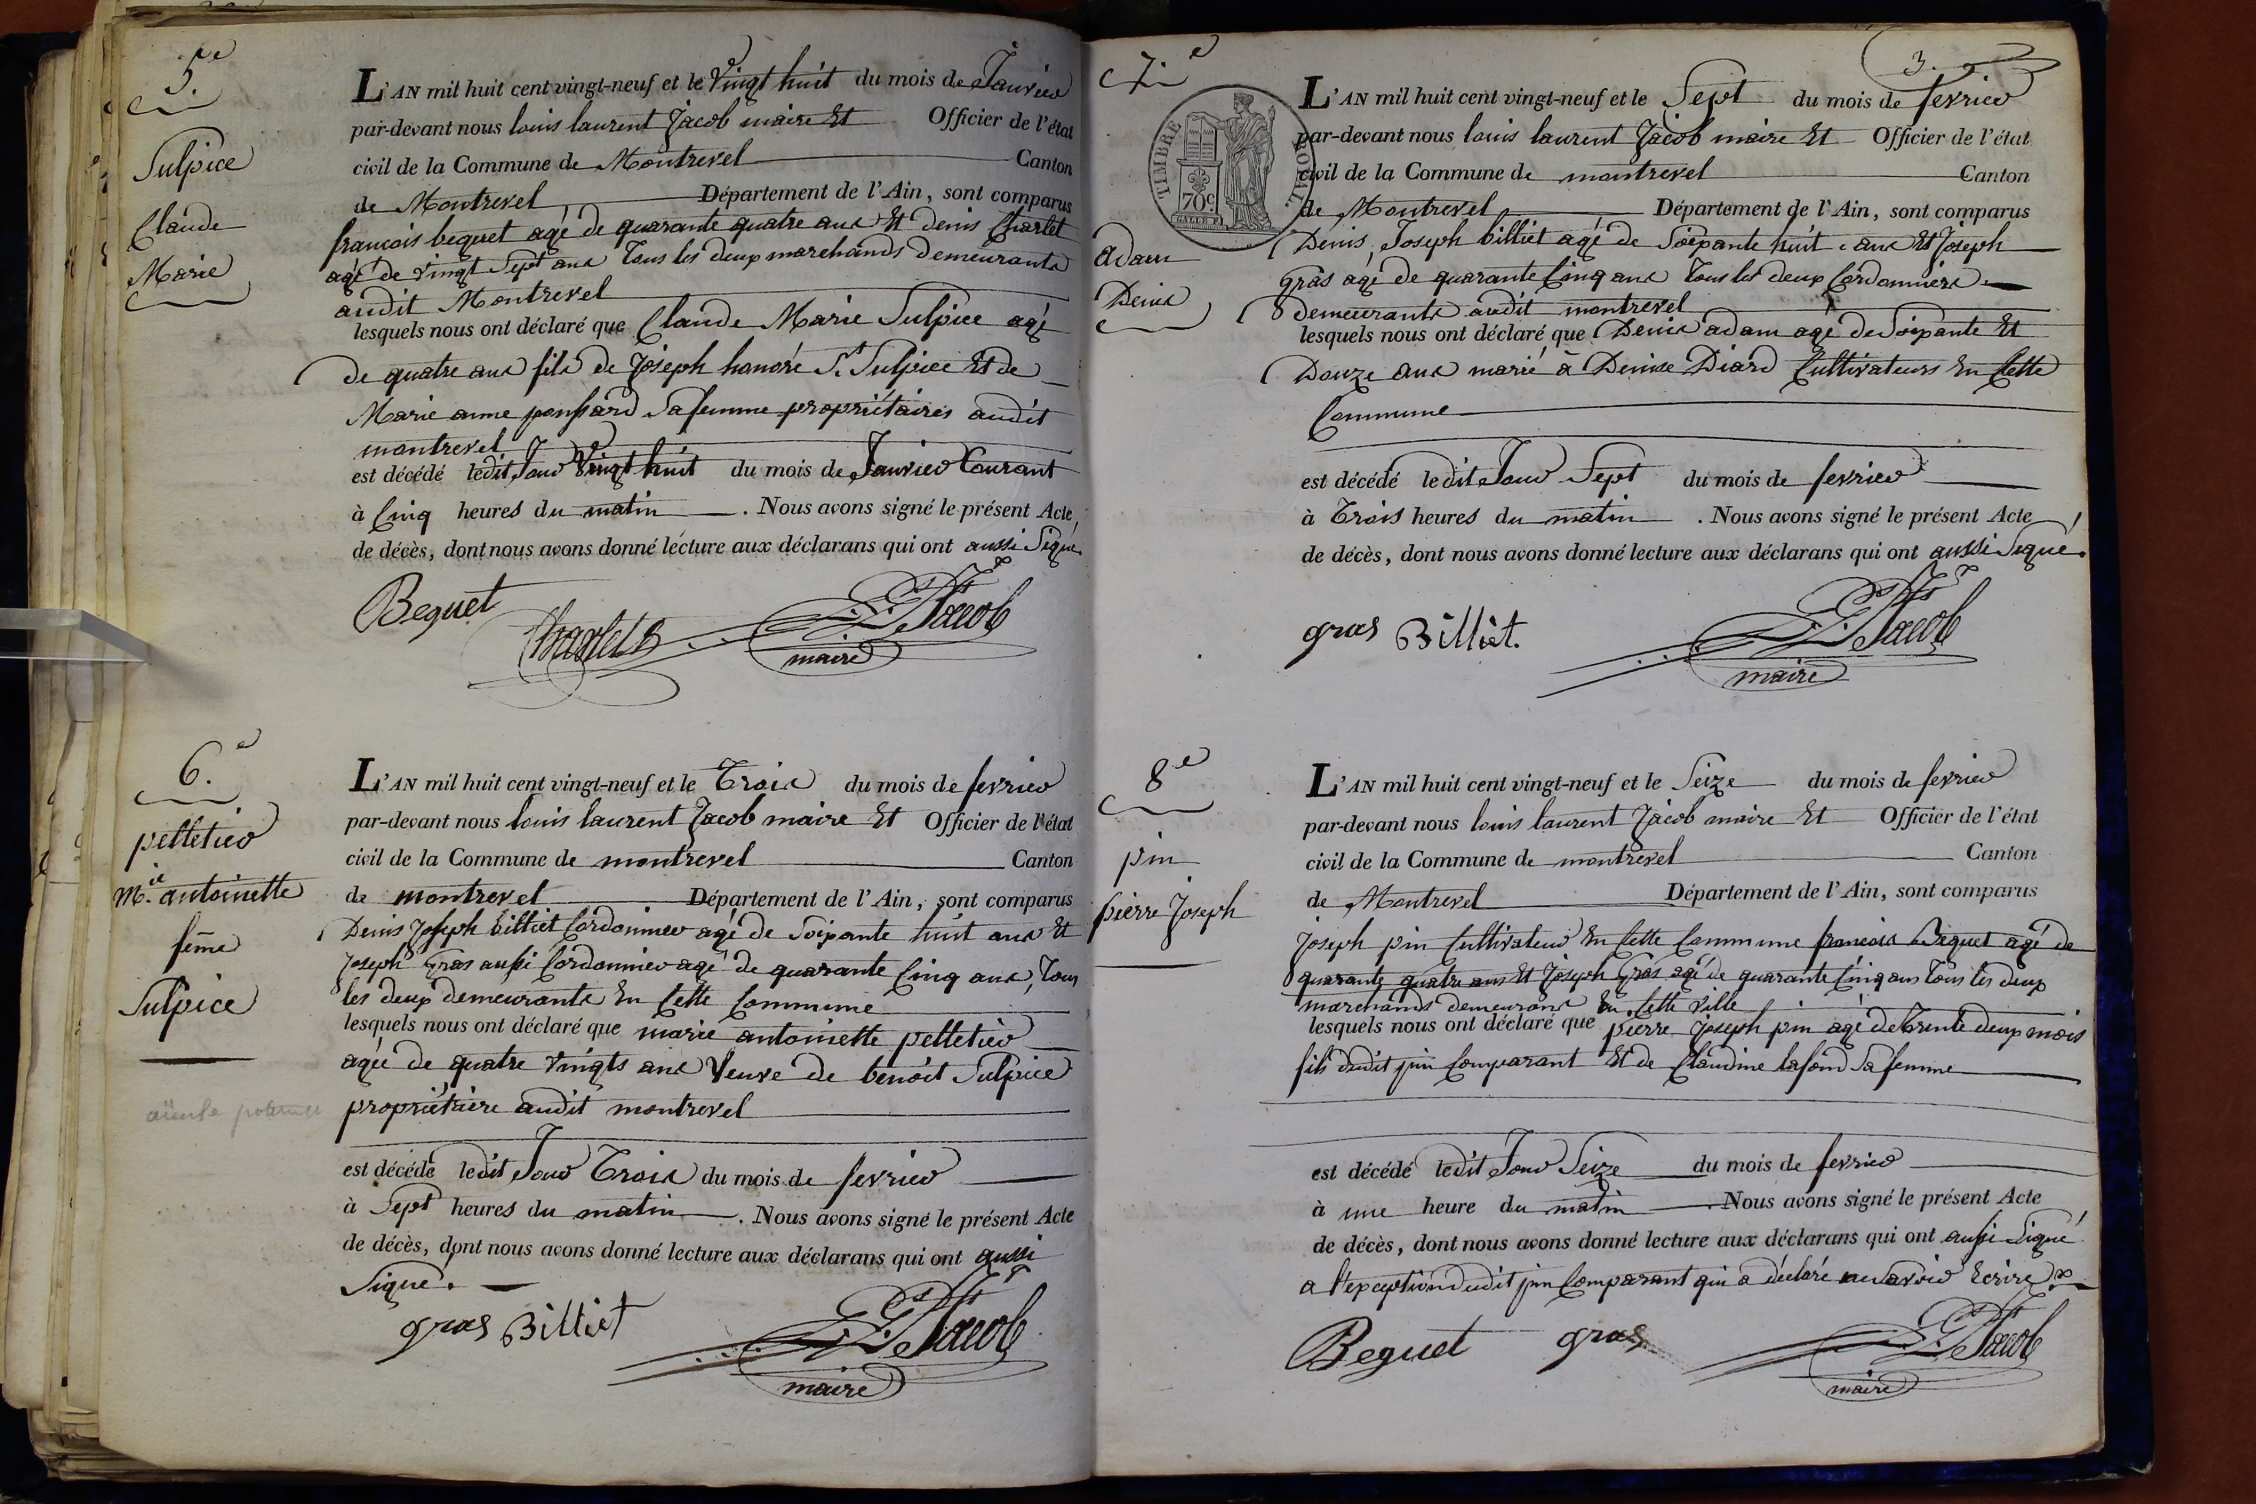 5.e
Sulpice
Claude
Marie
L'AN mil huit cent vingt-neuf et le Vingt huit du mois de Janvier
par-devant nous louis laurent Jacob maire Et Officier de l'état
civil de la Commune de Montrevel Canton
de Montrevel Département de l'Ain, sont comparus
francois bequet agé de quarante quatre ans Et denis Charlet
agé de vingt Sept ans Tous les deux marchands demeurants
audit Montrevel
lesquels nous ont déclaré que Claude Marie Sulpice agé
de quatre ans fils de Joseph honoré St. Sulpice Et de
Marie anne ponsard Sa femme propriétaires audit
montrevel
est décédé ledit Jour Vingt huit du mois de Janvier Courant
à Cinq heures du matin . Nous avons signé le présent Acte
de décès, dont nous avons donné lecture aux déclarans qui ont aussi Signé.
Bequet
Charlet
Jacob
maire
6.e
pelletier
M.ie antoinette
feme
Sulpice
L'AN mil huit cent vingt-neuf et le Trois du mois de fevrier
par-devant nous louis laurent Jacob maire Et Officier de l'état
civil de la Commune de montrevel Canton
de montrevel Département de l'Ain, sont comparus
Denis Joseph billiet Cordonnier agé de Soixante huit ans Et
Joseph Gras aussi Cordonnier agé de quarante Cinq ans, Tous
les deux demeurants En Cette Commune
lesquels nous ont déclaré que marie antoinette pelletier
agée de quatre vingts ans Veuve de benoit Sulpice
propriétaire audit montrevel
est décédé ledit Jour Trois du mois de fevrier
à Sept heures du matin . Nous avons signé le présent Acte
de décès, dont nous avons donné lecture aux déclarans qui ont aussi
Signé.
gras Billiet
Jacob
maire
3.
7.e
TIMBRE ROYAL
70c
adam
Denis
L'AN mil huit cent vingt-neuf et le Sept du mois de fevrier
par-devant nous louis laurent Jacob maire Et Officier de l'état
civil de la Commune de montrevel Canton
de Montrevel Département de l'Ain, sont comparus
Dénis Joseph billiet agé de Soixante huit ans Et Joseph
gras agé de quarante Cinq ans Tous les deux Cordonniers
demeurants audit montrevel
lesquels nous ont déclaré que Denis adam agé de Soixante Et
Douze ans marié à Denise Diard Cultivateurs En Cette
Commune
est décédé ledit Jour Sept du mois de fevrier
à Trois heures du matin . Nous avons signé le présent Acte
de décès, dont nous avons donné lecture aux déclarans qui ont aussi Signé.
gras Billiet.
Jacob
maire
8e
pin
pierre Joseph
L'AN mil huit cent vingt-neuf et le Seize du mois de fevrier
par-devant nous louis laurent Jacob maire Et Officier de l'état
civil de la Commune de montrevel Canton
de Montrevel Département de l'Ain, sont comparus
Joseph pin Cultivateur En Cette Commune francois Bequet agé de
quarante quatre ans Et Joseph Gras agé de quarante Cinq ans Tous les deux
marchands demeurans En Cette ville
lesquels nous ont déclaré que pierre Joseph pin agé de Trente deux mois
fils dudit pin Comparant Et de Claudine lafond Sa femme
est décédé ledit Jour Seize du mois de fevrier
à une heure du matin . Nous avons signé le présent Acte
de décès, dont nous avons donné lecture aux déclarans qui ont aussi Signé
a l'exception dudit pin Comparant qui a déclaré ne savoir Ecrire
Bequet gras
Jacob
maire